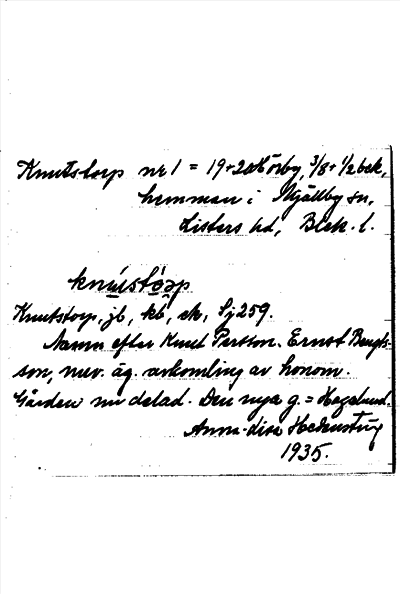 Knutstorp nr 1 = 19+20 Hörby, 3/8+1/2 bek,
hemman i Mjällby sn,
Listers hd, Blek. l.
knustorp
Knutstorp, jb, kb, ek, Sj 259.
Namn efter Knut Persson. Ernst Bengts-
son, nuv. äg. avkomling av honom.
Gården nu delad. Den nya g. = Hagalund.
Anna-disa
1935.